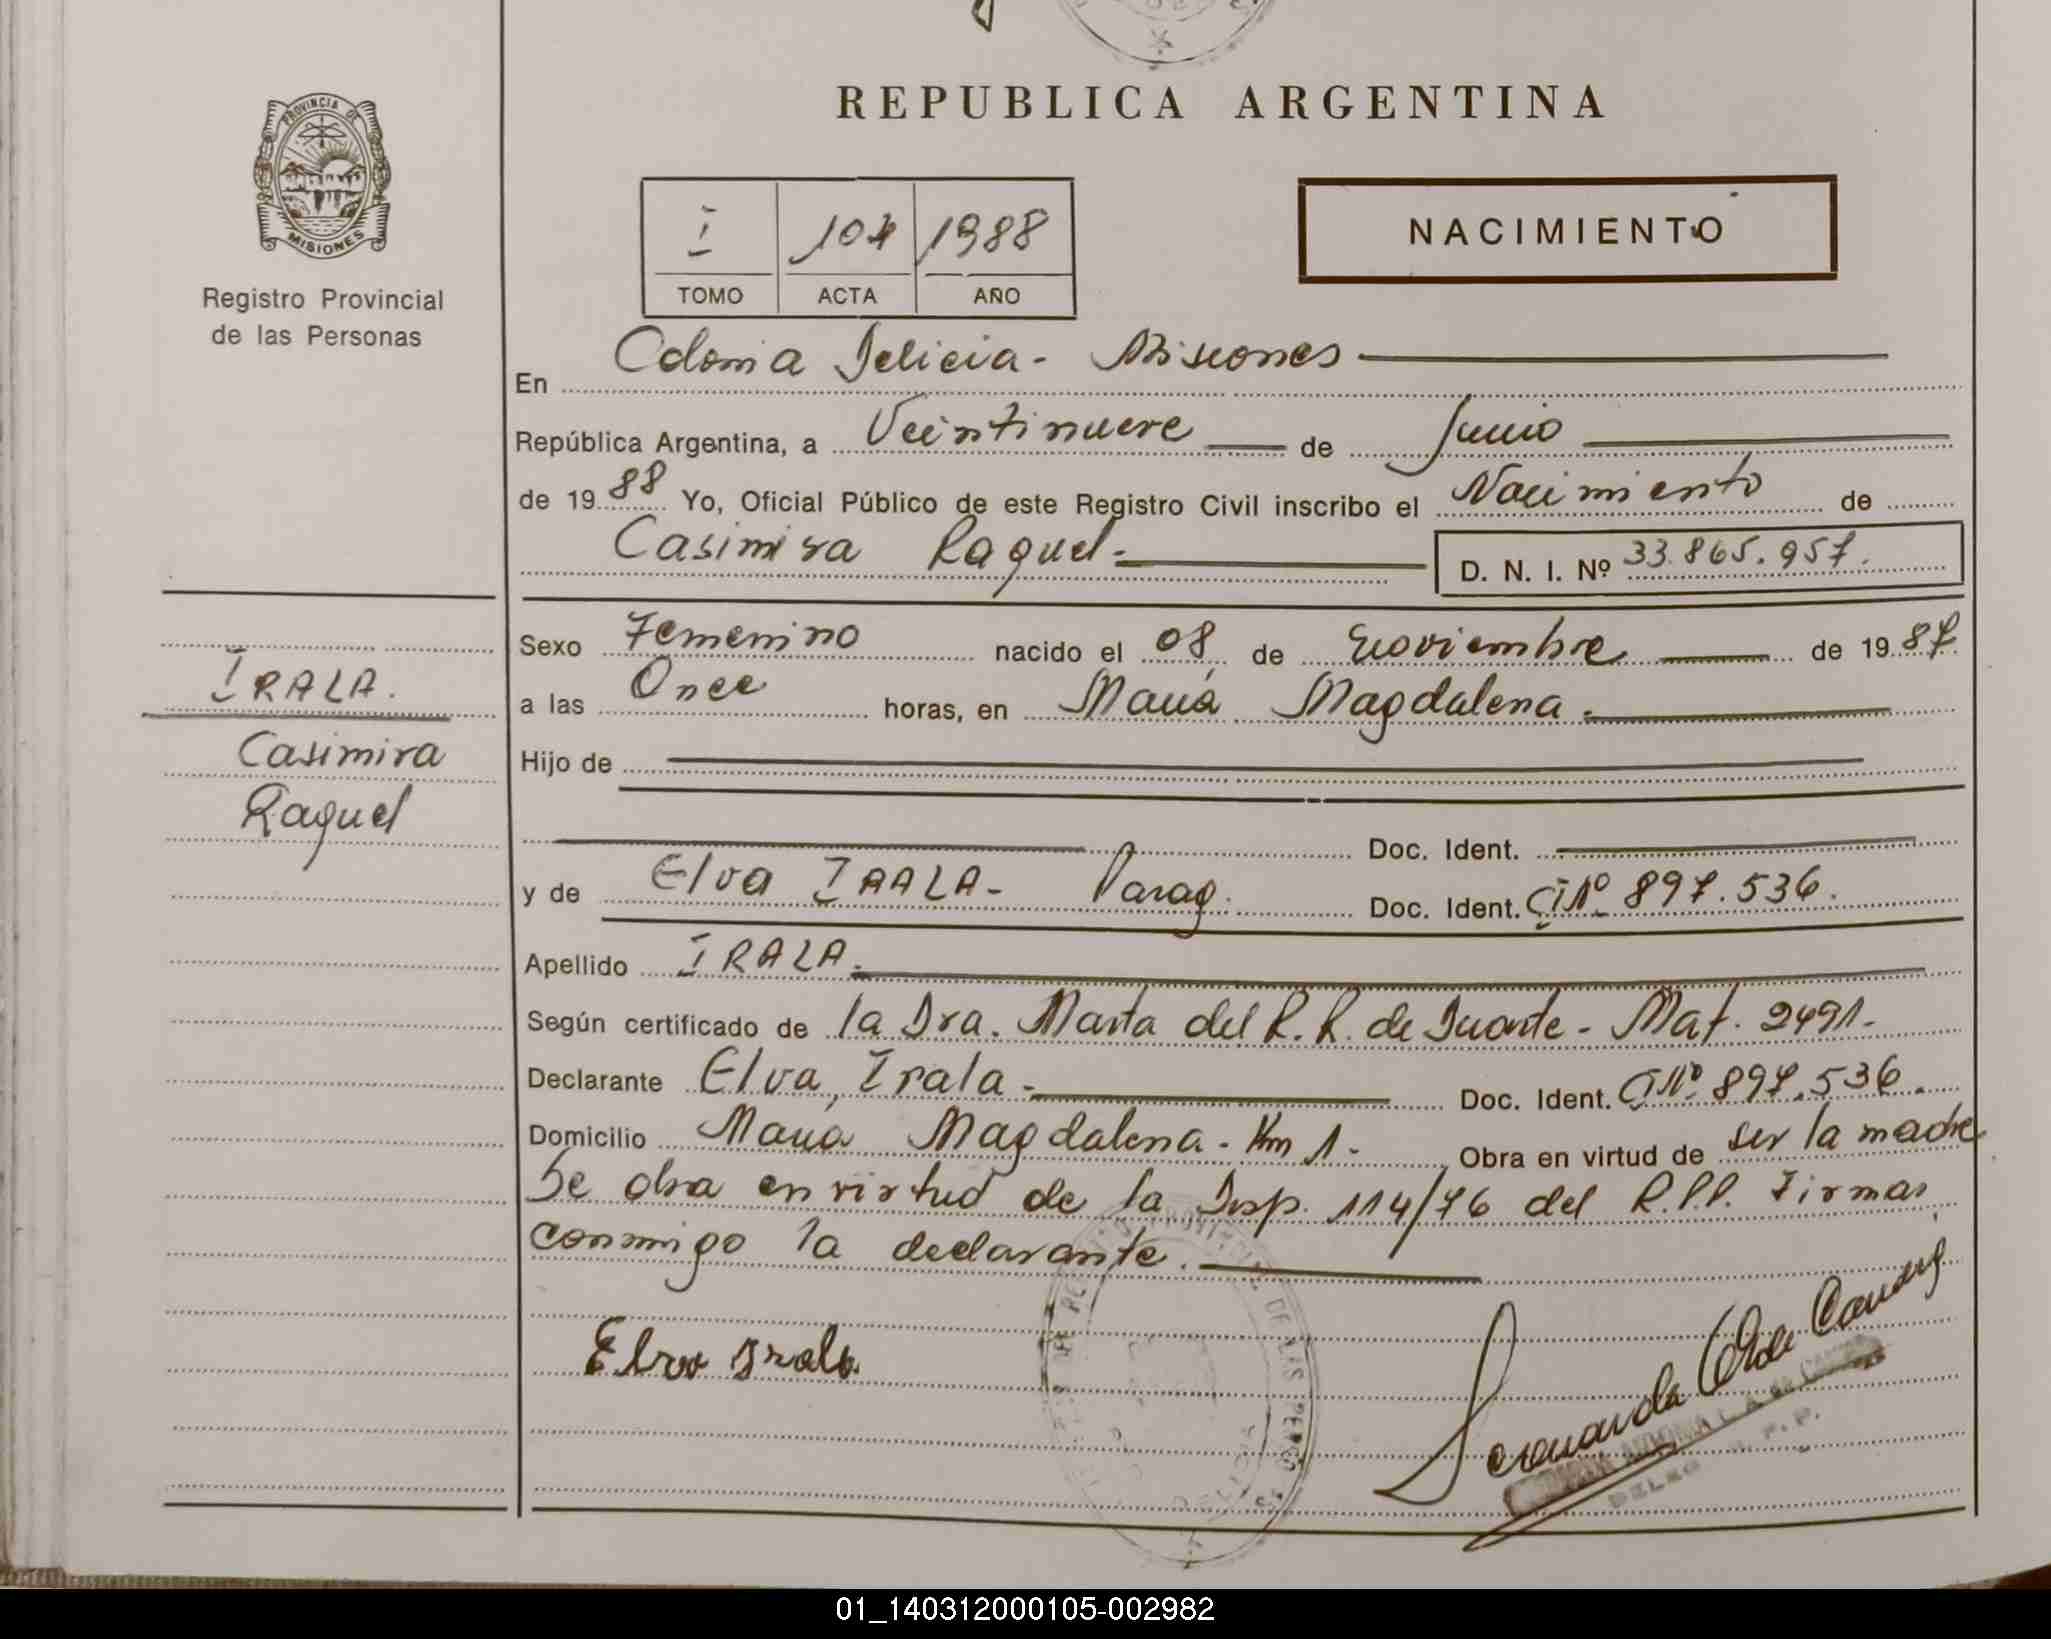 PROVINCIA DE
MISIONES
Registro Provincial
de las Personas
REPUBLICA ARGENTINA
I 104 1988
TOMO ACTA AÑO
NACIMIENTO
En Colonia Delicia - Misiones
República Argentina, a Veintinueve de Junio
de 19 88 Yo, Oficial Público de este Registro Civil inscribo el Nacimiento de
Casimira Raquel.- D. N. I. Nº 33.865.957.
Sexo Femenino nacido el 08 de Noviembre de 19 87
a las Once horas, en María Magdalena.
Hijo de
Doc. Ident.
y de Elva IRALA- Parag. Doc. Ident. CI Nº 897.536.
Apellido IRALA.
Según certificado de la Dra. Marta del R. R. de Duarte - Mat. 2491.-
Declarante Elva Irala.- Doc. Ident. CI Nº 897.536.
Domicilio María Magdalena - Km 1.- Obra en virtud de ser la madre
Se obra en virtud de la Disp. 114/76 del R.P.P. Firman
conmigo la declarante.
IRALA.
Casimira
Raquel
Elva Irala
01_140312000105-002982